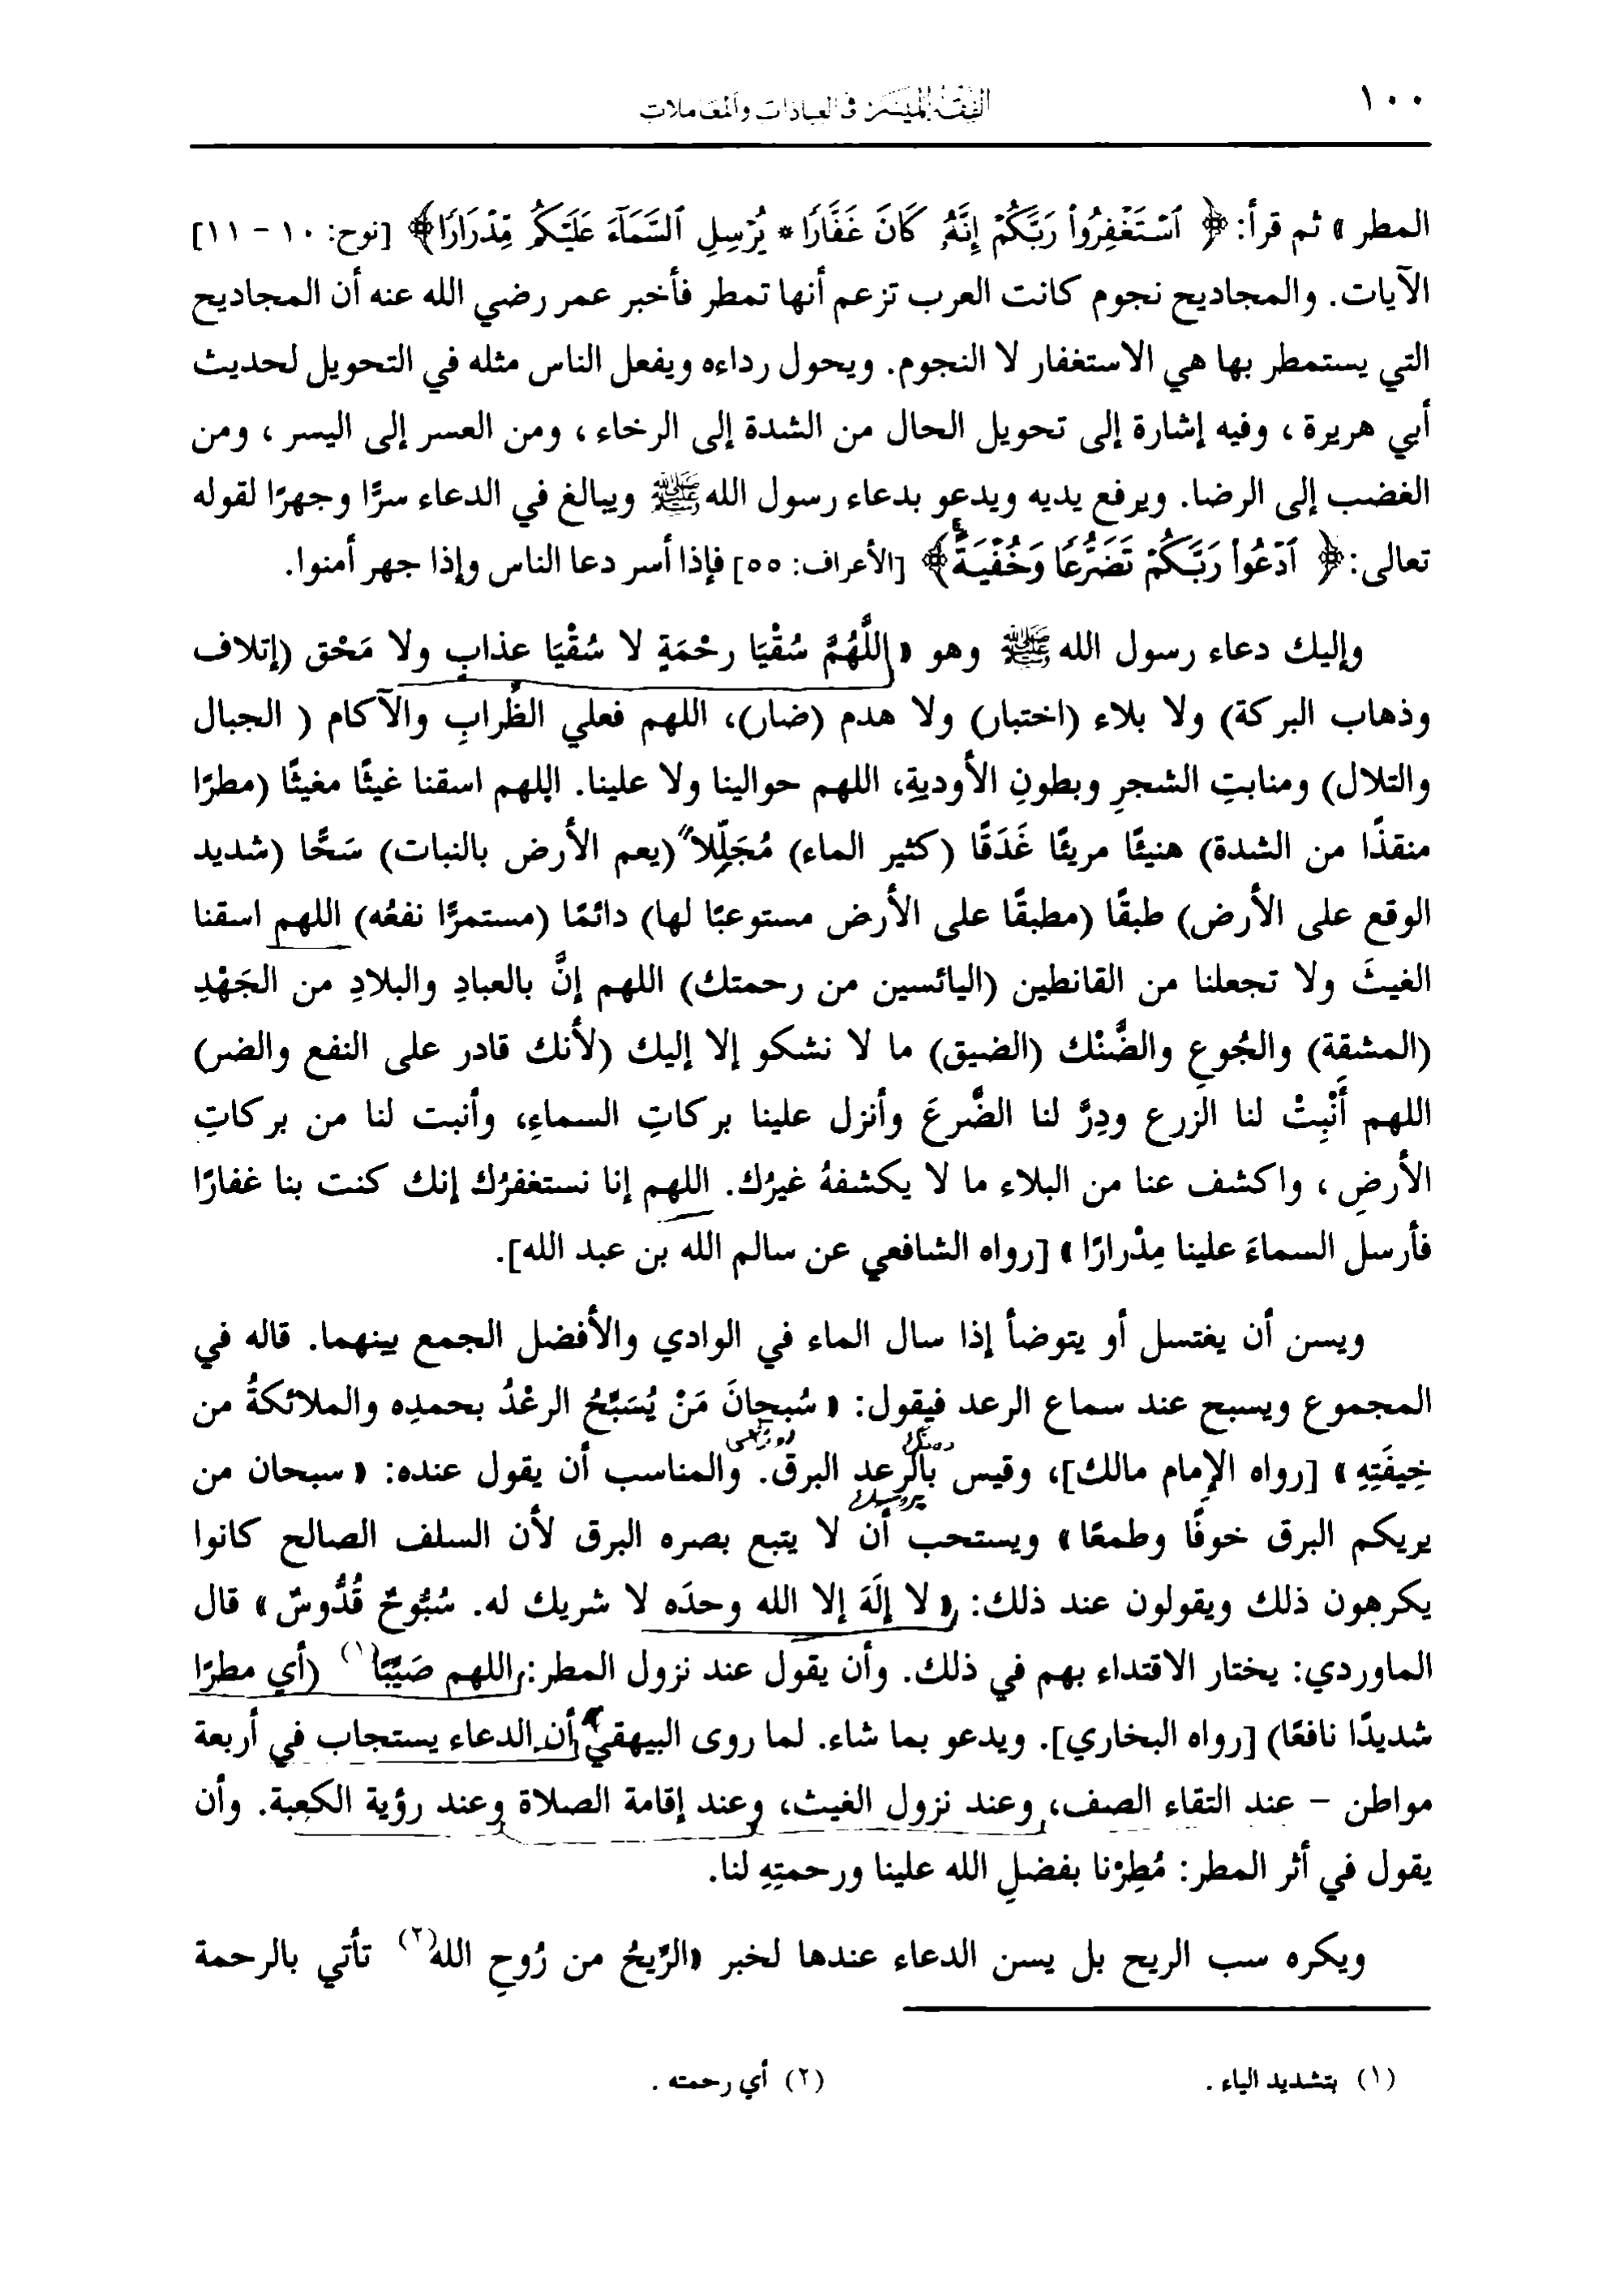 ١٠٠ الفقه الميسر في العبادات والمعاملات
المطر » ثم قرأ: ﴿ ٱسْتَغْفِرُوا۟ رَبَّكُمْ إِنَّهُۥ كَانَ غَفَّارًا * يُرْسِلِ ٱلسَّمَآءَ عَلَيْكُم مِّدْرَارًا﴾ [نوح: ١٠ - ١١]
الآيات. والمجاديح نجوم كانت العرب تزعم أنها تمطر فأخبر عمر رضي الله عنه أن المجاديح
التي يستمطر بها هي الاستغفار لا النجوم. ويحول رداءه ويفعل الناس مثله في التحويل لحديث
أبي هريرة ، وفيه إشارة إلى تحويل الحال من الشدة إلى الرخاء ، ومن العسر إلى اليسر ، ومن
الغضب إلى الرضا. ويرفع يديه ويدعو بدعاء رسول الله ﷺ ويبالغ في الدعاء سرًّا وجهرًا لقوله
تعالى: ﴿ ٱدْعُوا۟ رَبَّكُمْ تَضَرُّعًا وَخُفْيَةً ۚ﴾ [الأعراف: ٥٥] فإذا أسر دعا الناس وإذا جهر أمنوا.
وإليك دعاء رسول الله ﷺ وهو « اللَّهُمَّ سُقْيَا رحْمَةٍ لا سُقْيَا عذابٍ ولا مَحْق (إتلاف
وذهاب البركة) ولا بلاء (اختبار) ولا هدم (ضار)، اللهم فعلي الظُرابِ والآكام ( الجبال
والتلال) ومنابتِ الشجرِ وبطونِ الأوديةِ، اللهم حوالينا ولا علينا. اللهم اسقنا غيثًا مغيثًا (مطرًا
منقذًا من الشدة) هنيئًا مريئًا غَدَقًا (كثير الماء) مُجَلِّلاً (يعم الأرض بالنبات) سَحًّا (شديد
الوقع على الأرض) طبقًا (مطبقًا على الأرض مستوعبًا لها) دائمًا (مستمرًّا نفعُه) اللهم اسقنا
الغيثَ ولا تجعلنا من القانطين (اليائسين من رحمتك) اللهم إنَّ بالعبادِ والبلادِ من الجَهْدِ
(المشقة) والجُوعِ والضَّنْك (الضيق) ما لا نشكو إلا إليك (لأنك قادر على النفع والضر)
اللهم أَنْبِتْ لنا الزرع ودِرَّ لنا الضَّرعَ وأنزل علينا بركاتِ السماءِ، وأنبت لنا من بركاتِ
الأرضِ ، واكشف عنا من البلاء ما لا يكشفهُ غيرُك. اللهم إنا نستغفرُك إنك كنت بنا غفارًا
فأرسل السماءَ علينا مِدْرارًا » [رواه الشافعي عن سالم الله بن عبد الله].
ويسن أن يغتسل أو يتوضأ إذا سال الماء في الوادي والأفضل الجمع بينهما. قاله في
المجموع ويسبح عند سماع الرعد فيقول: « سُبحانَ مَنْ يُسَبِّحُ الرعْدُ بحمدِه والملائكةُ من
خِيفَتِهِ » [رواه الإمام مالك]، وقيس بالرعد البرق. والمناسب أن يقول عنده: « سبحان من
يريكم البرق خوفًا وطمعًا » ويستحب أن لا يتبع بصره البرق لأن السلف الصالح كانوا
يكرهون ذلك ويقولون عند ذلك: « لا إلَهَ إلا الله وحدَه لا شريك له. سُبُّوحٌ قُدُّوسٌ » قال
الماوردي: يختار الاقتداء بهم في ذلك. وأن يقول عند نزول المطر: اللهم صَيِّبًا (١) (أي مطرًا
شديدًا نافعًا) [رواه البخاري]. ويدعو بما شاء. لما روى البيهقي أن الدعاء يستجاب في أربعة
مواطن – عند التقاء الصف، وعند نزول الغيث، وعند إقامة الصلاة وعند رؤية الكعبة. وأن
يقول في أثر المطر: مُطِرْنا بفضلِ الله علينا ورحمتِهِ لنا.
ويكره سب الريح بل يسن الدعاء عندها لخبر «الرِّيحُ من رُوحِ الله (٢) تأتي بالرحمة
(١) بتشديد الياء . (٢) أي رحمته .